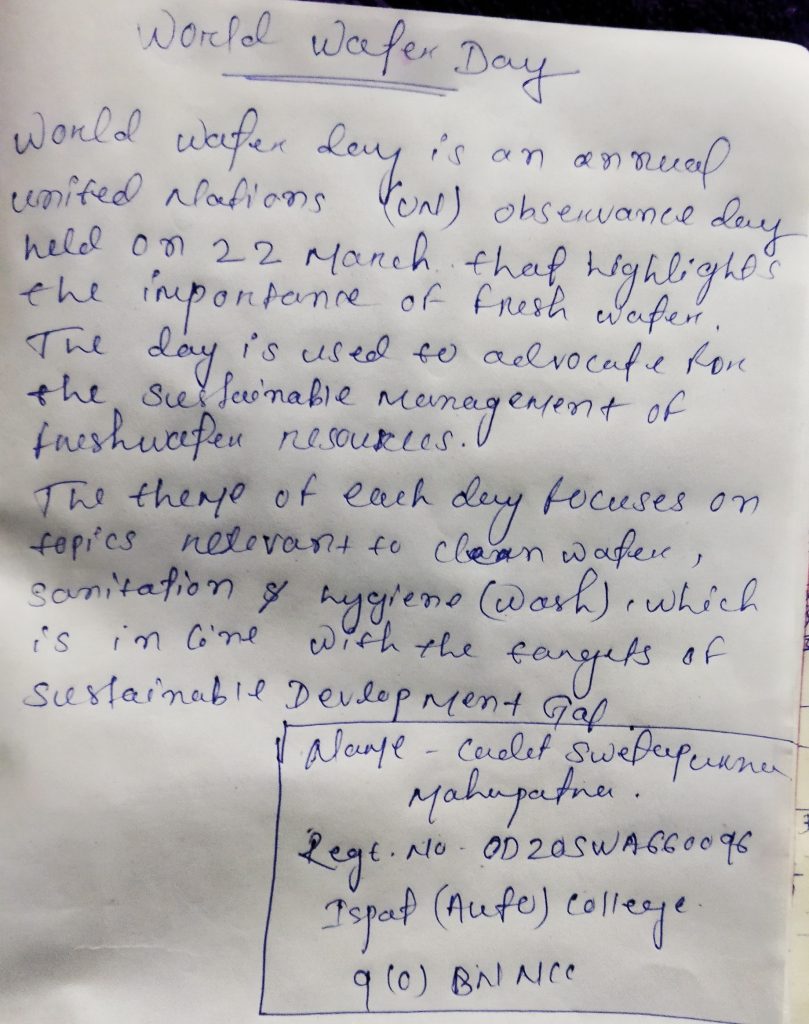 World Water Day
World water day is an annual
united Nations (UN) observance day
held on 22 March. that highlights
the importance of fresh water.
The day is used to advocate for
the sustainable management of
freshwater resources.
The theme of each day focuses on
topics relevant to clean water,
sanitation & hygiene (Wash), which
is in line with the targets of
Sustainable Development Gal
Name - Cadet Swetapurna
Mahapatra.
Regt. No - OD20SWA660096
Ispat (Auto) College.
9 (O) BN NCC